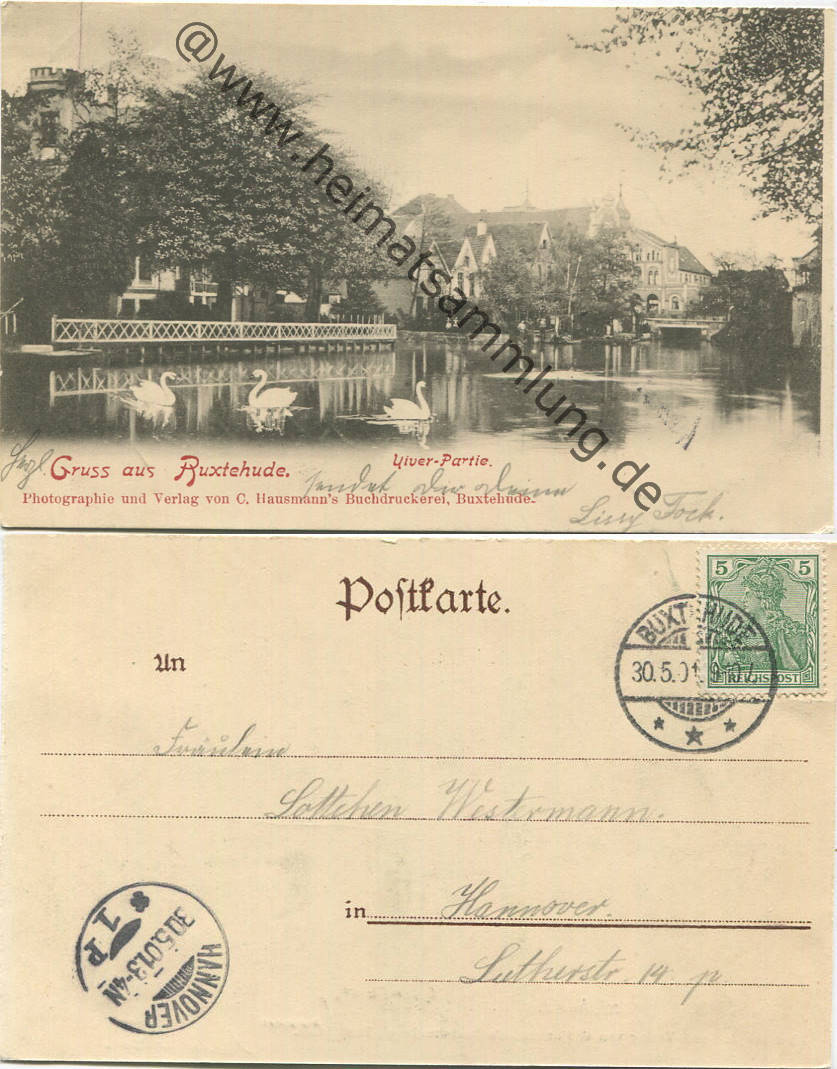 @www.heimatsammlung.de
Herzl.
Gruss aus Buxtehude.
Viver-Partie.
sendet Dir Deine
Photographie und Verlag von C. Hausmann's Buchdruckerei, Buxtehude.
Lissy Tock.
Postkarte.
5 5
REICHSPOST
BUXTEHUDE
30.5.01.
An
Fräulein
Lottchen Westermann.
in Hannover.
Lutherstr. 14 p
HANNOVER
30.5.01.3-4N
* 1 P